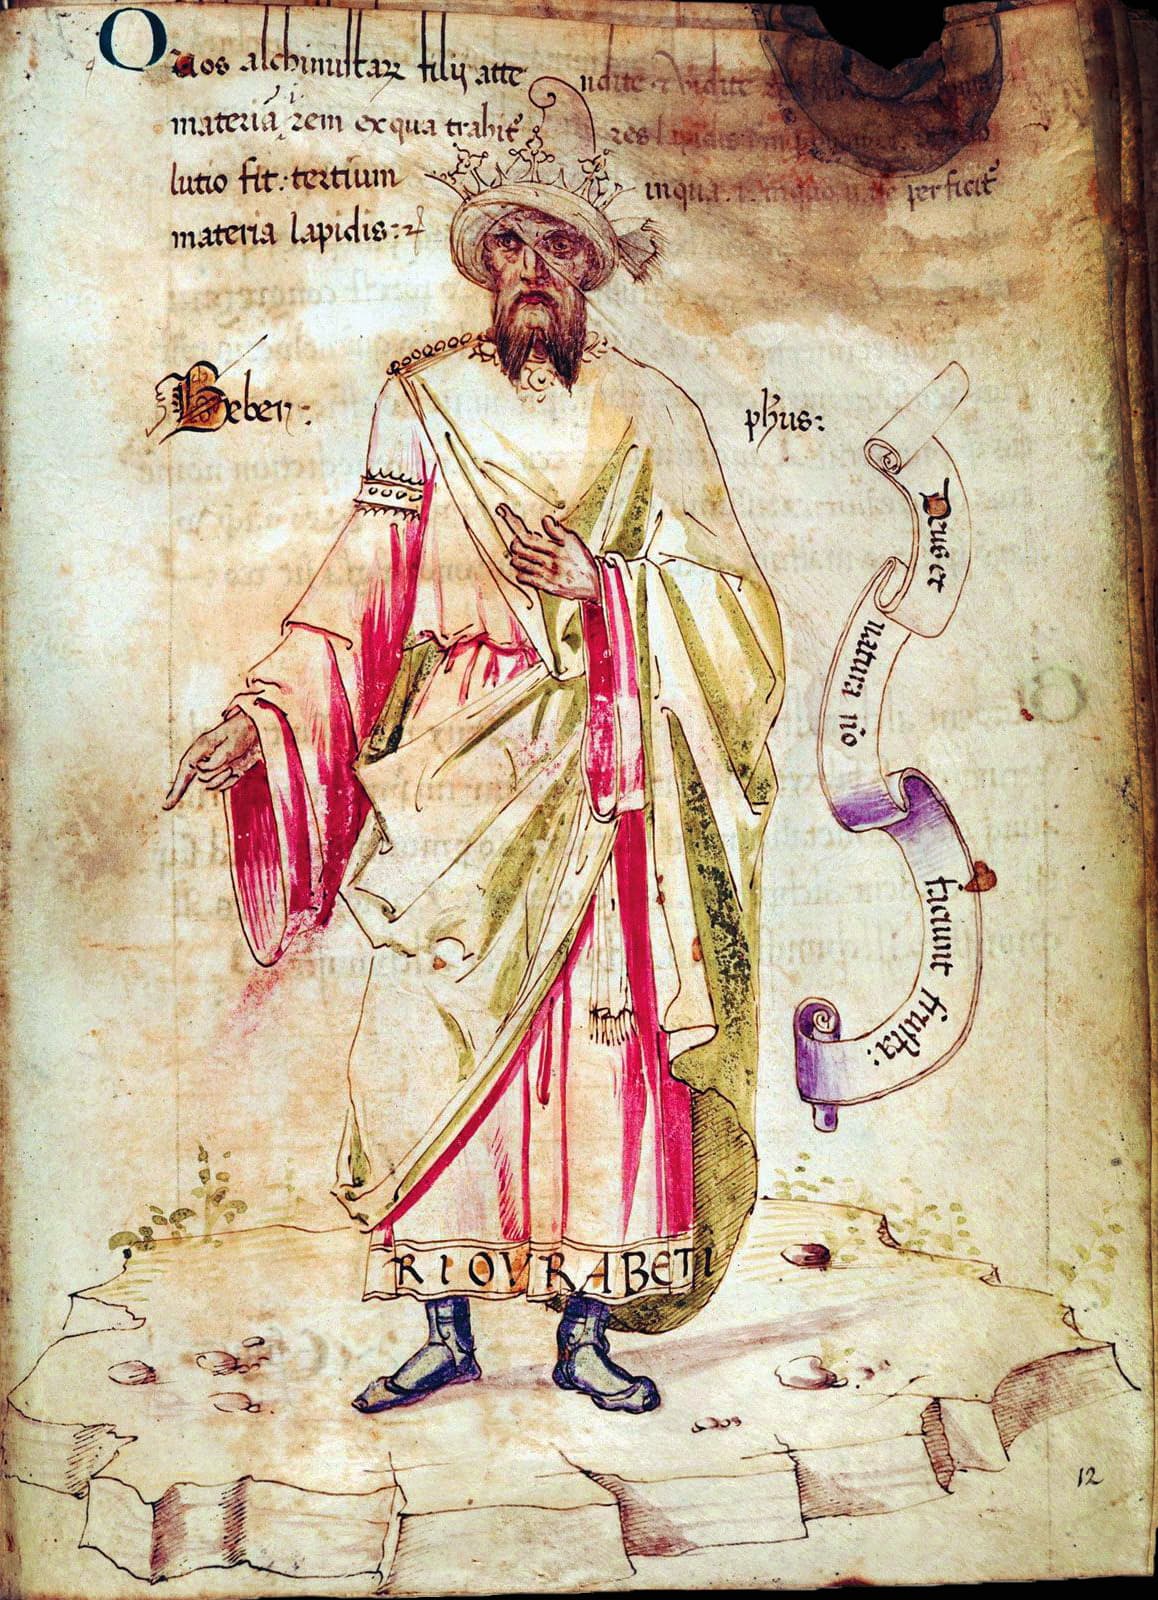 O Vos alchimistarz filij atte ndite & vidite
materiã rem ex qua trahit res lapidis
lutio fit: tertium inqua perficit
materia lapidis: &
Geber: phus:
Deus et
natura nõ
faciunt frustra:
RIOVRABETI
12